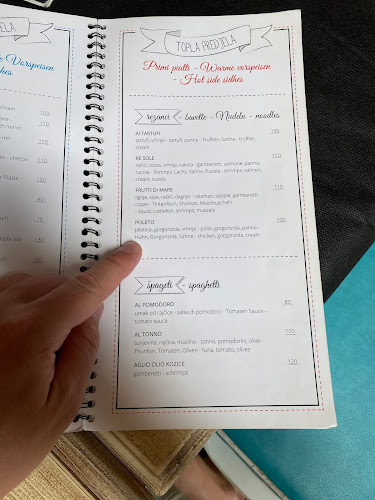 JELA
Vorspeisen
100
110
110
150
40
70
110
TOPLA PREDJELA
Primi piatti - Warme vorspeisen
- Hot side sidhes
rezanci - bavette - Nudeln - noodles
AI TARTUFI 130
tartufi, vrhnje - tartufi, panna - Truffles, Sahne - truffles,
cream
RE SOLE 110
račići, losos, vrhnje, rukola - gamberetti, salmone, panna,
rucola - Shrimps, Lachs, Sahne, Rucola - shrimps, salmon,
cream, rucola
FRUTTI DI MARE 110
lignje, sipe, račići, dagnje - calamari, seppie, gamberetti
cozze - Tintenfisch, Shrimps, Miesmuscheln
- squid, cuttlefish, shrimps, mussels
POLETO 100
piletina, gorgonzola, vrhnje - pollo, gorgonzola, panna -
Huhn, Gorgonzola, Sahne - chicken, gorgonzola, cream
špageti - spaghetti
AL POMODORO 80
umak od rajčice - salsa di pomodoro - Tomaten Sauce -
tomato sauce
AL TONNO 100
tunjevina, rajčica, masline - tonno, pomodorini, olive -
Thunfish, Tomaten, Oliven - tuna, tomato, olives
AGLIO OLIO KOZICE 120
gamberetti - schrimps